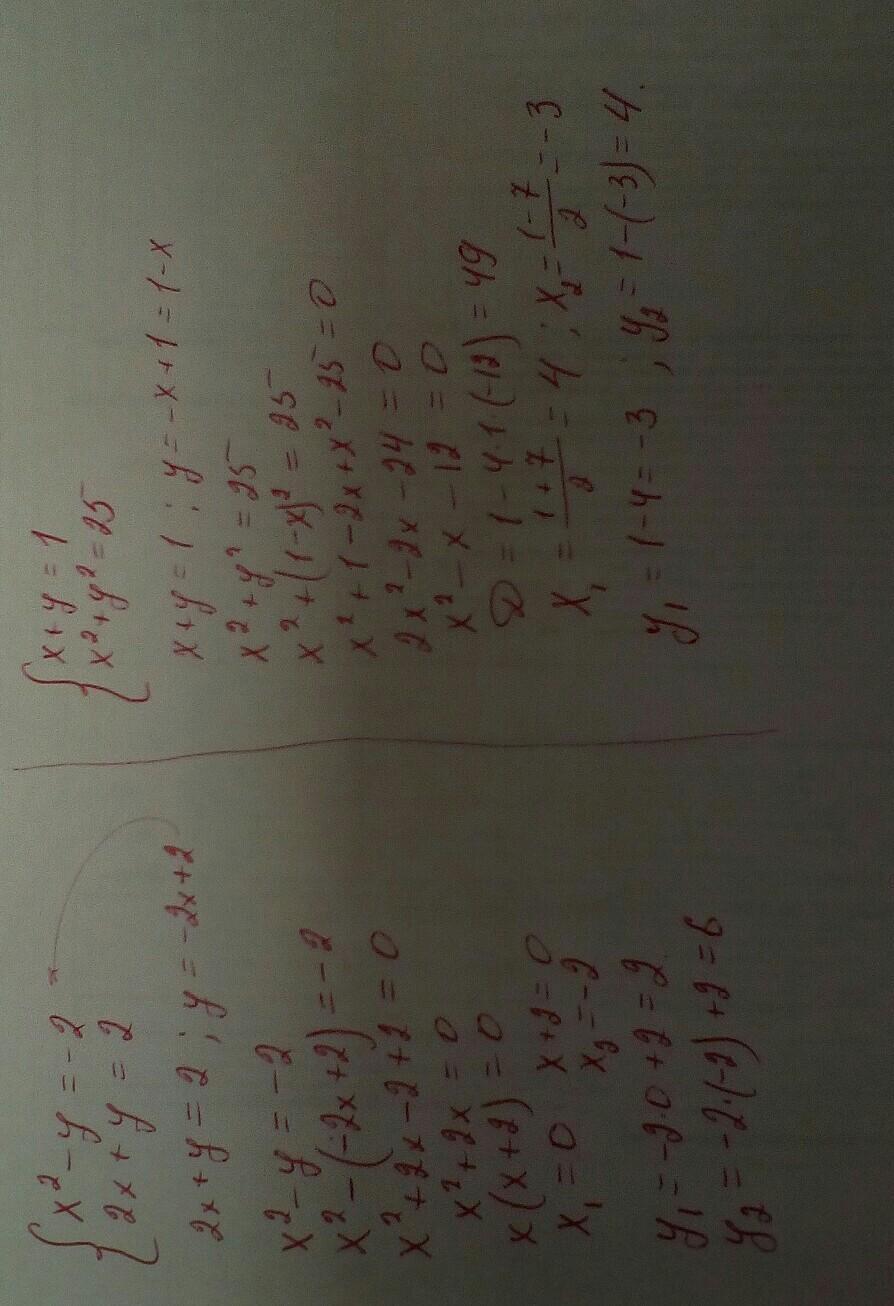 { x² - y = -2
2x + y = 2
2x + y = 2 ; y = -2x + 2
x² - y = -2
x² - (-2x + 2) = -2
x² + 2x - 2 + 2 = 0
x² + 2x = 0
x(x + 2) = 0
x₁ = 0 x + 2 = 0
x₂ = -2
y₁ = -2·0 + 2 = 2
y₂ = -2·(-2) + 2 = 6
{ x + y = 1
x² + y² = 25
x + y = 1 ; y = -x + 1 = 1 - x
x² + y² = 25
x² + (1 - x)² = 25
x² + 1 - 2x + x² - 25 = 0
2x² - 2x - 24 = 0
x² - x - 12 = 0
D = 1 - 4·1·(-12) = 49
x₁ = (1 + 7)/2 = 4 ; x₂ = (1 - 7)/2 = -3
y₁ = 1 - 4 = -3 ; y₂ = 1 - (-3) = 4.